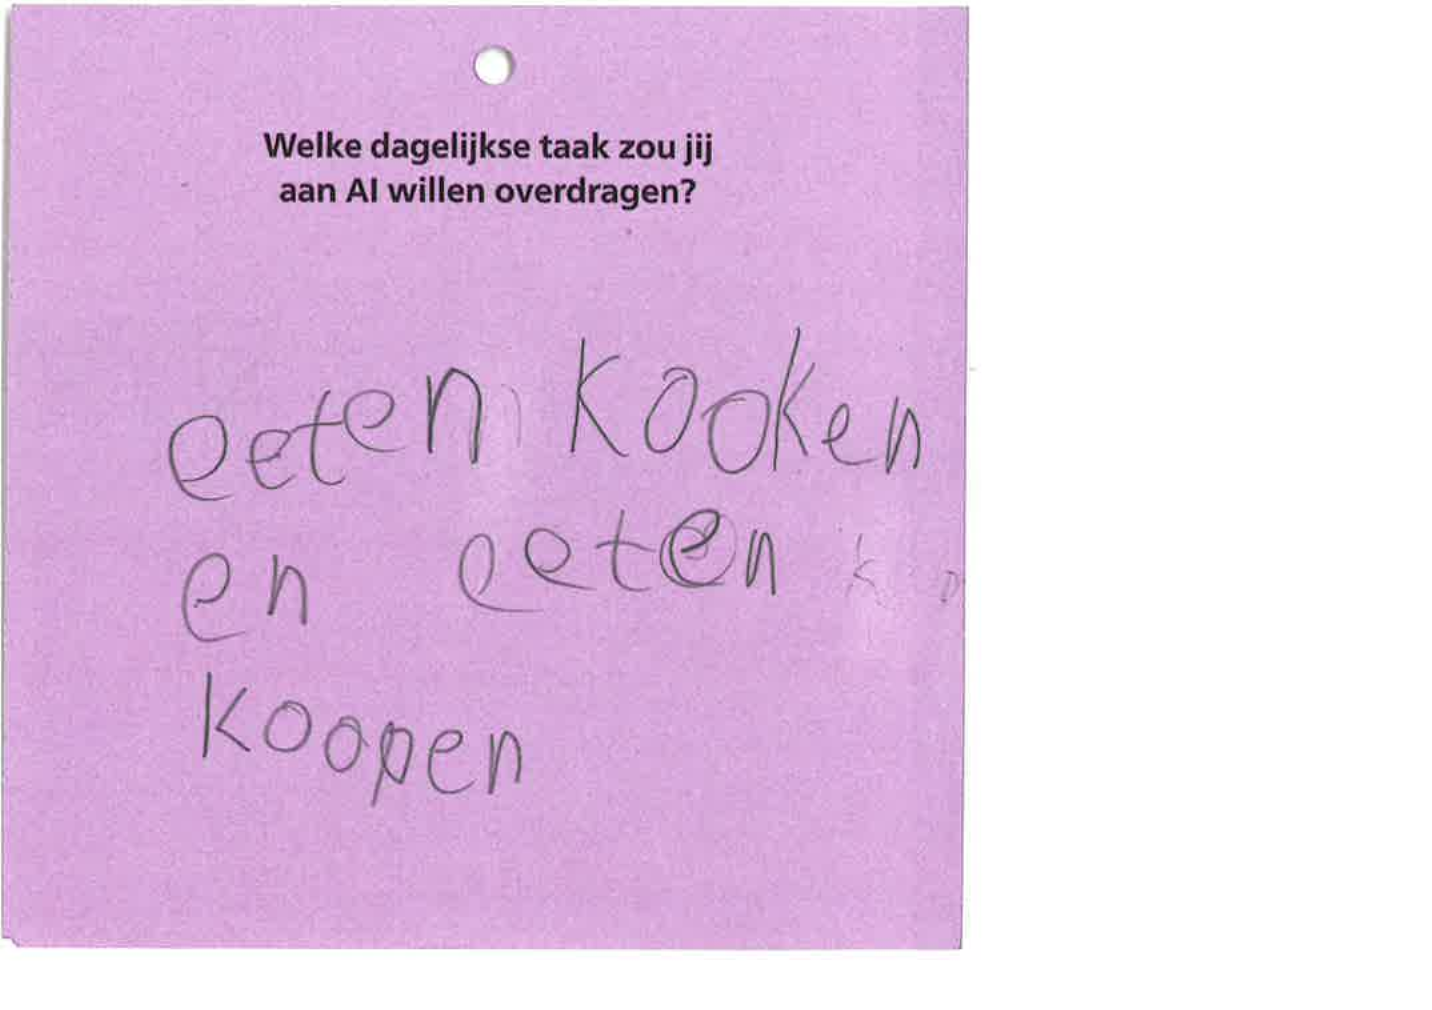 Welke dagelijkse taak zou jij
aan AI willen overdragen?
eeten kooken
en eeten
koopen